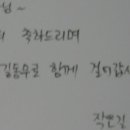 님~
축하드리며
길동무로 함께 걸어갑시
작은길